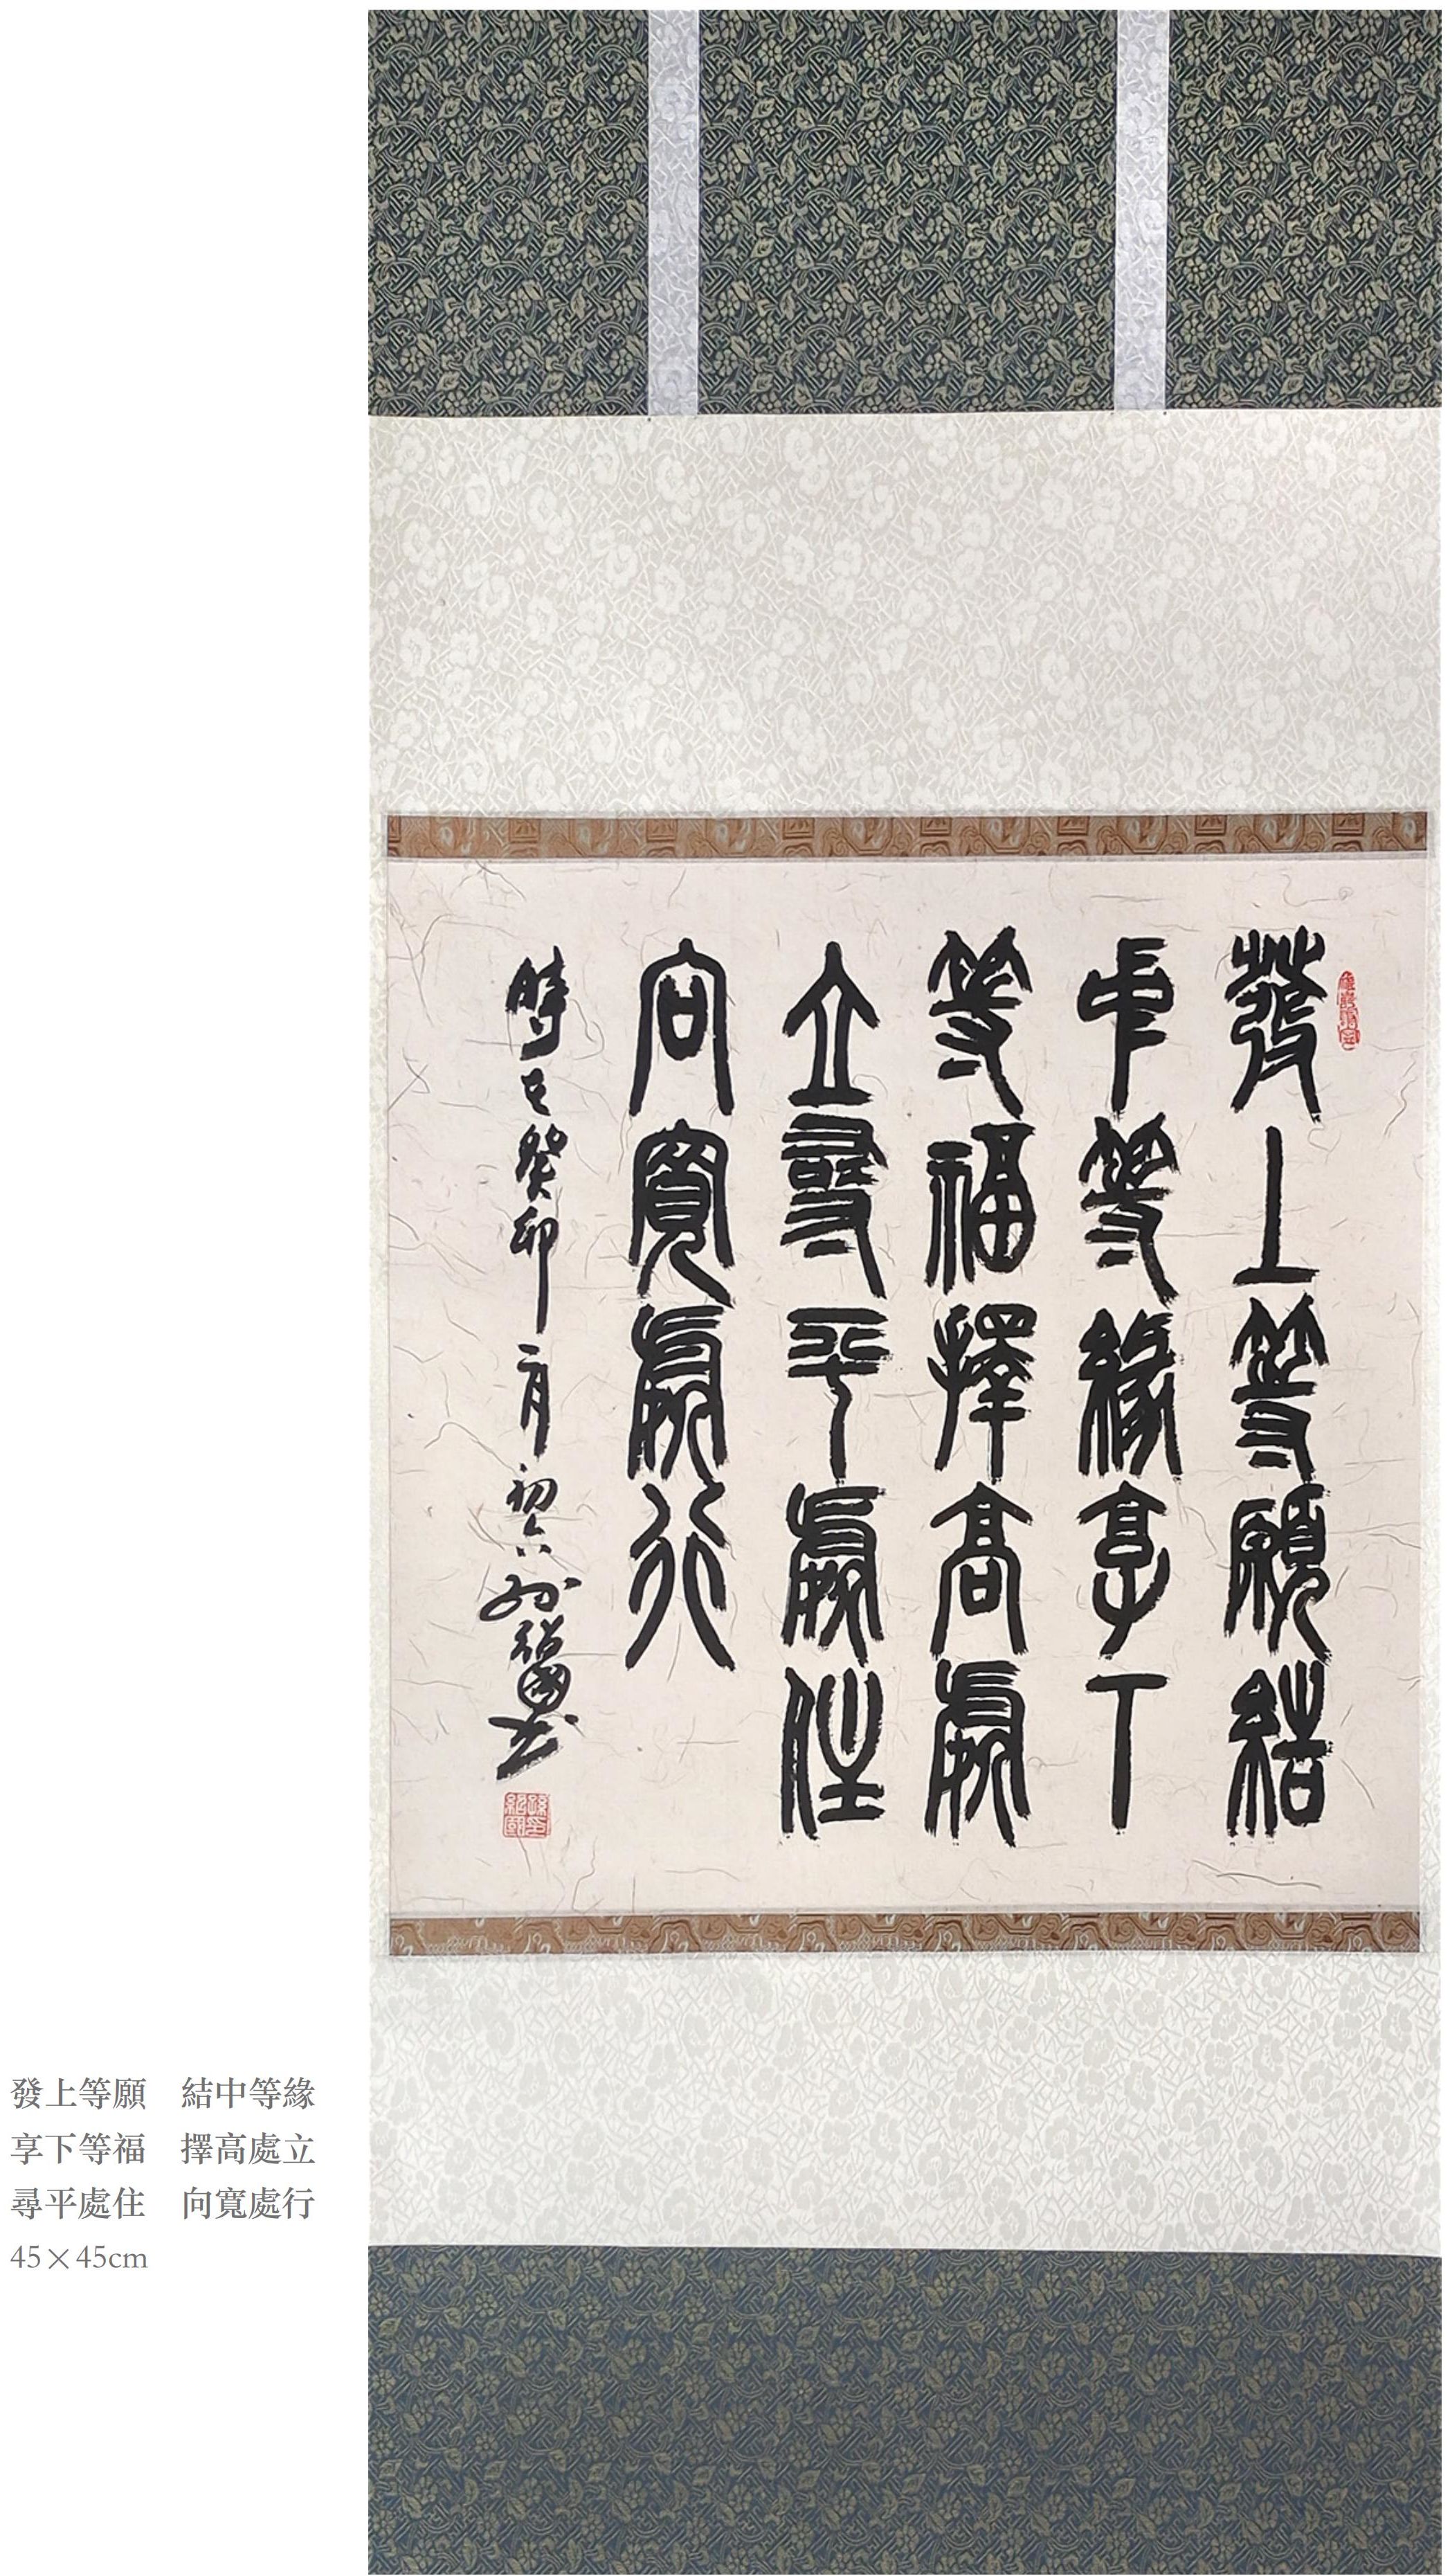 發上等願結
中等緣享下
等福擇高處
立尋平處住
向寬處行
時已癸卯二月初六
發上等願　結中等緣
享下等福　擇高處立
尋平處住　向寬處行
45×45cm